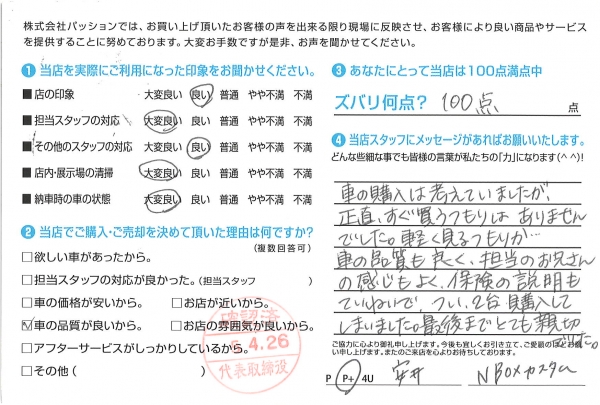 株式会社パッションでは、お買い上げ頂いたお客様の声を出来る限り現場に反映させ、お客様により良い商品やサービス
を提供することに努めております。大変お手数ですが是非、お声を聞かせてください。
❶ 当店を実際にご利用になった印象をお聞かせください。
■ 店の印象 大変良い 良い 普通 やや不満 不満
■ 担当スタッフの対応 大変良い 良い 普通 やや不満 不満
■ その他のスタッフの対応 大変良い 良い 普通 やや不満 不満
■ 店内・展示場の清掃 大変良い 良い 普通 やや不満 不満
■ 納車時の車の状態 大変良い 良い 普通 やや不満 不満
❷ 当店でご購入・ご売却を決めて頂いた理由は何ですか?
(複数回答可)
□欲しい車があったから。
□担当スタッフの対応が良かった。(担当スタッフ )
□車の価格が安いから。 □お店が近いから。
☑車の品質が良いから。 □お店の雰囲気が良いから。
□アフターサービスがしっかりしているから。
□その他( )
確認済
5.4.26
代表取締役
❸ あなたにとって当店は100点満点中
ズバリ何点? 100点 点
❹ 当店スタッフにメッセージがあればお願いいたします。
どんな些細な事でも皆様の言葉が私たちの「力」になります(^ ^)!
車の購入は考えていましたが、
正直、すぐ買うつもりは ありません
でした。軽く見るつもりが…
車の品質も良く、担当のお兄さん
の感じもよく、保険の説明も
ていねいで、つい、2台購入して
しまいました。最後までとても親切
でした。
ご協力に心より御礼申し上げます。今後も宜しくお引き立て、ご愛顧のほどお願
い申し上げます。またのご来店を心よりお待ちしております。
P P+ 4U 安井 NBOXカスタム